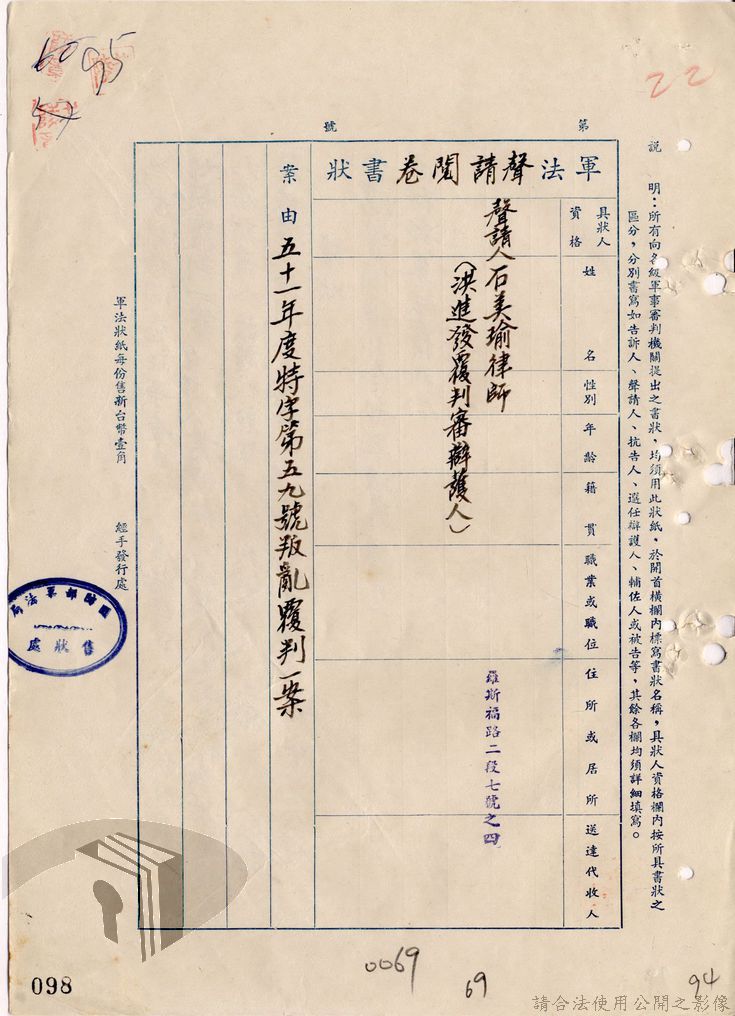 22
說明：所有向各級軍事審判機關提出之書狀，均須用此狀紙，於開首橫欄內標寫書狀名稱，具狀人資格欄內按所具書狀之
區分，分別書寫如告訴人、聲請人、抗告人、選任辯護人、輔佐人或被告等，其餘各欄均須詳細填寫。
第 號
軍法聲請閱卷書狀
具狀人
資格
姓名
性別
年齡
籍貫
職業或職位
住所或居所
送達代收人
聲請人 石美瑜律師
(洪進發覆判審辯護人)
羅斯福路二段七號之四
案由 五十一年度特字第五九號叛亂覆判一案
軍法狀紙每份售新台幣壹角 經手發行處
國防部軍法局
售狀處
0069
69
94
098
請合法使用公開之影像